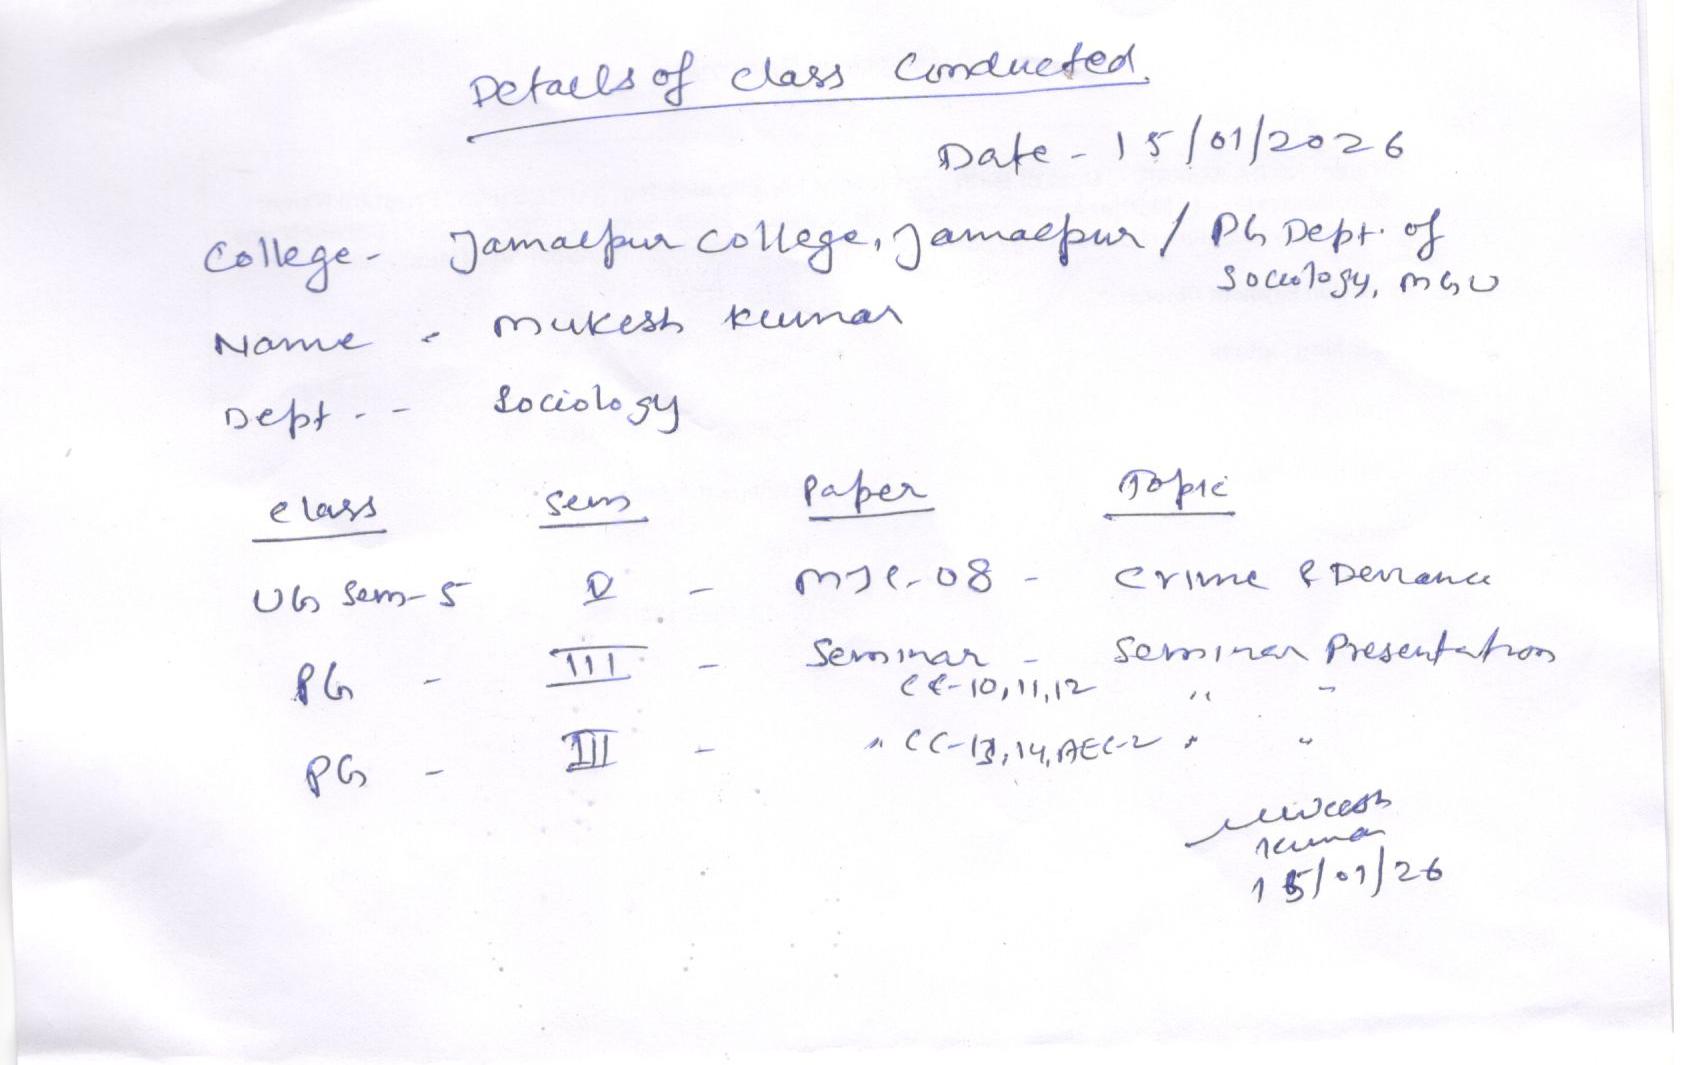 Details of class Conducted.
Date - 15/01/2026
College - Jamalpur College, Jamalpur / PG Dept. of
Sociology, MGU
Name - Mukesh Kumar
Dept. - Sociology
class Sem Paper Topic
UG Sem-5 V - MJC-08 - Crime & Deviance
PG - III - Seminar - Seminar Presentation
CC-10,11,12 " -
PG - III - " CC-13,14,AEC-2 " "
Mukesh
Kumar
15/01/26